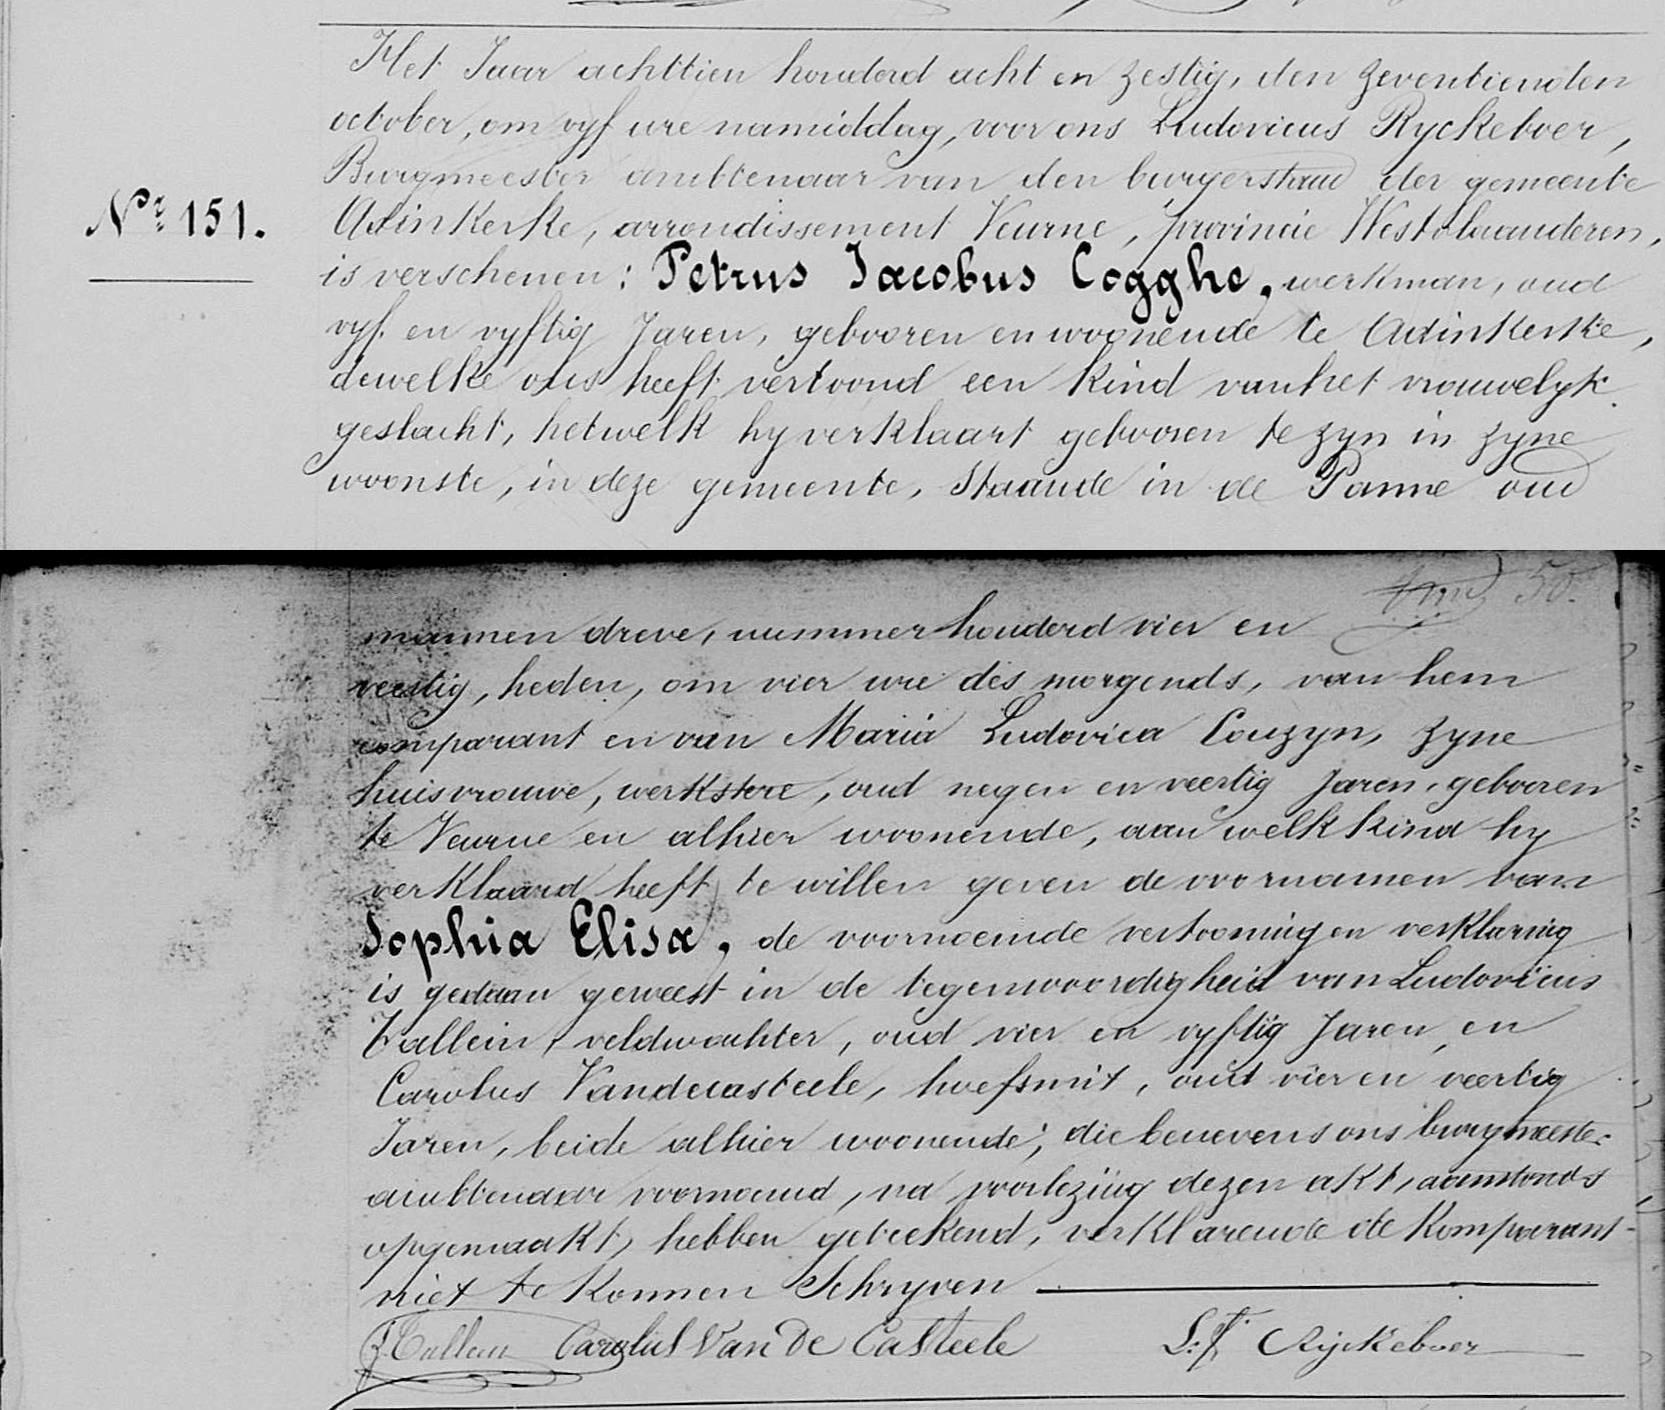 Het Jaar achttien honderd acht en zestig, den zeventienden
october, om vyf ure namiddag, voor ons Ludovicus Ryckeboer,
Burgmeester ambtenaar van den burgerstand der gemeente
Adinkerke, arrondissement Veurne, provincie Westvlaanderen,
Nr 151.
is verschenen: Petrus Jacobus Cogghe, werkman, oud
vyf en vyftig Jaren, gebooren en woonende te Adinkerke,
dewelke ons heeft vertoond een kind van het vrouwelyk
geslacht, hetwelk hy verklaart gebooren te zyn in zyne
woonste, in deze gemeente, staande in de Panne oud
50.
mannen dreve, nummer honderd vier en
veertig, heden, om vier ure des morgends, van hem
comparant en van Maria Ludovica Couzyn, zyne
huisvrouwe, werkstere, oud negen en veertig Jaren, gebooren
te Veurne en alhier woonende, aan welk kind hy
verklaard heeft te willen geven de voornamen van
Sophia Elisa, de voornoemde vertooning en verklaring
is gedaan geweest in de tegenwoordigheid van Ludovicus
Tallein, veldwachter, oud vier en vyftig Jaren, en
Carolus Vandecasteele, hoefsmit, oud vier en veertig
Jaren, beide alhier woonende; die benevens ons burgmeester
ambtenaar voornoemd, na voorlezing dezen akt, aanstonds
opgemaakt, hebben geteekend, verklarende de Komparant
niet te konnen Schryven
L. Tallein Carolus Van De Casteele L. J. Ryckeboer